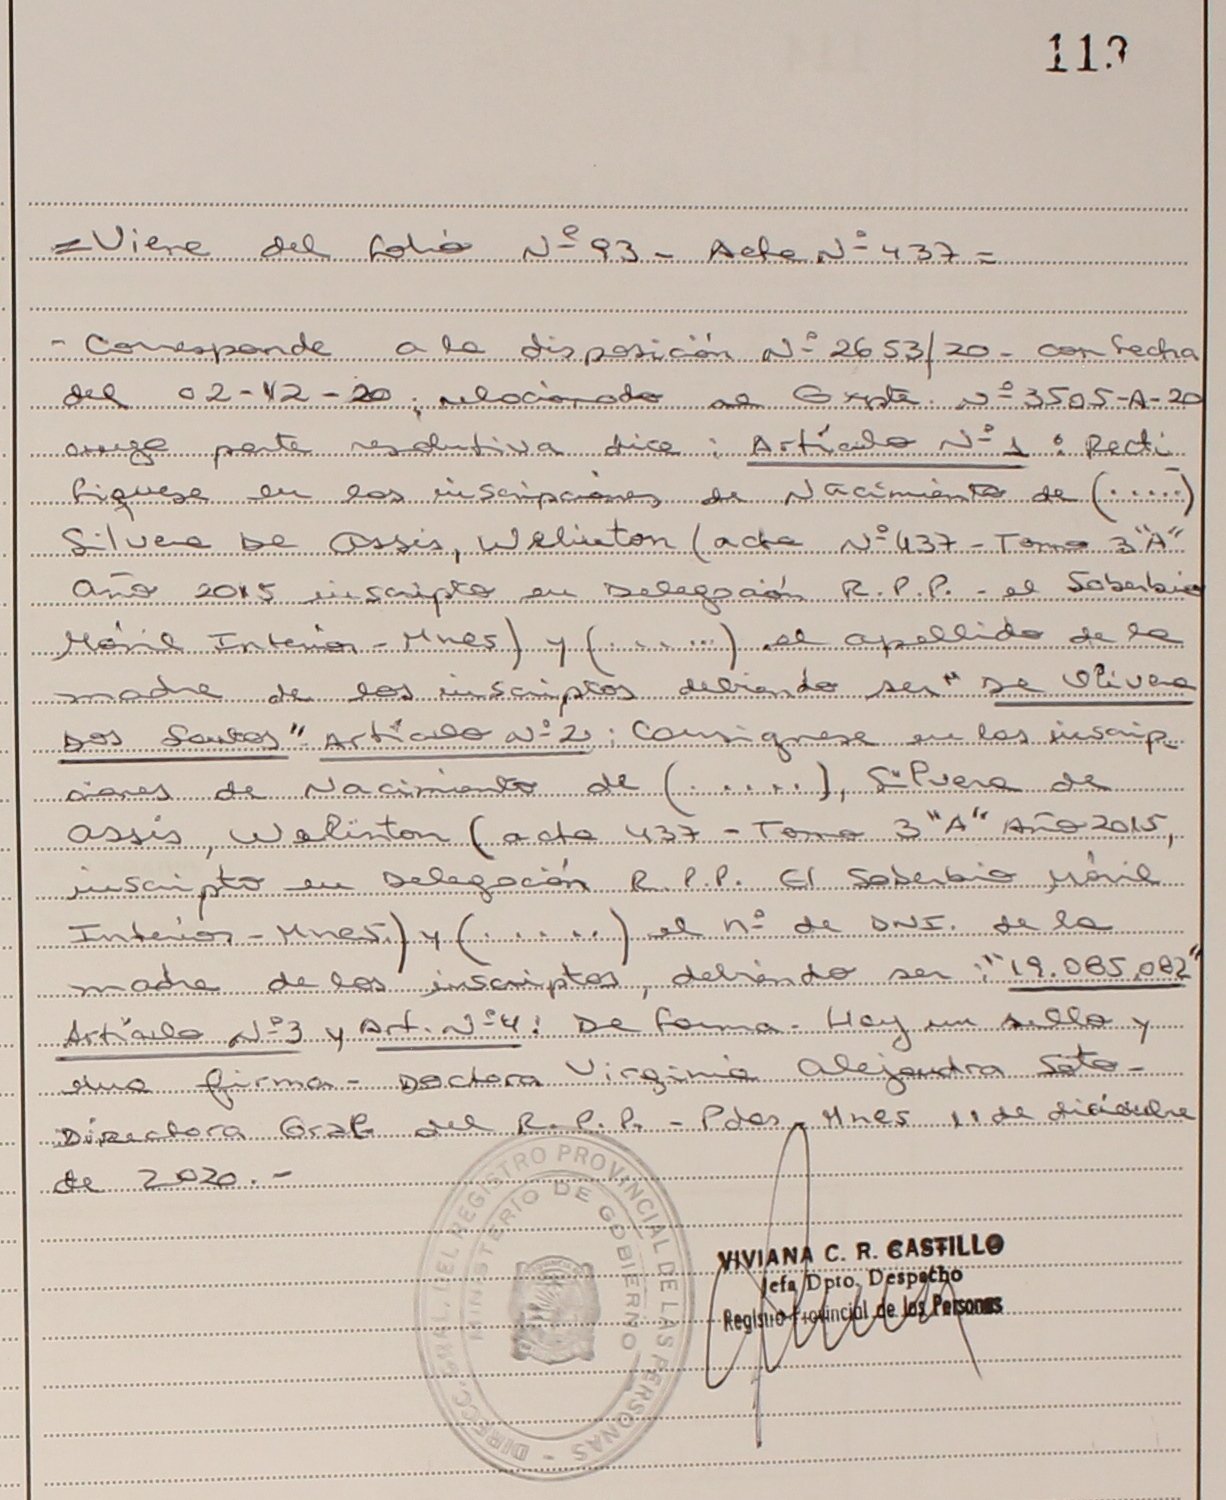 113
=Viene del folio Nº 93 - Acta Nº 437 =
- Corresponde a la disposición Nº 2653/20 - con fecha
del 02-12-20, relacionado al Expte. Nº 3505-A-20
cuya parte resolutiva dice: Artículo Nº 1: Recti
fiquese en las inscripciones de Nacimiento de (.....)
Silvera De Assis, Welinton (acta Nº 437 - Tomo 3 "A"
Año 2015 inscripto en Delegación R.P.P. - el Soberbio
Móvil Interior - Mnes) y (......) el apellido de la
madre de los inscriptos debiendo ser "De Olivera
Dos Santos" Artículo Nº 2: Consignese en las inscrip
ciones de Nacimiento de (.....), Silvera de
Assis, Welinton (acta 437 - Tomo 3 "A" Año 2015,
inscripto en Delegación R.P.P. El Soberbio Móvil
Interior - Mnes.) y (.....) el nº de DNI. de la
madre de los inscriptos, debiendo ser: "19.085.082"
Artículo Nº 3 y Art. Nº 4: De forma - Hay un sello y
una firma - Doctora Virginia Alejandra Soto -
Directora Gral del R.P.P. - Pdas - Mnes 11 de diciembre
de 2020. -
DIRECC. GRAL. DEL REGISTRO PROVINCIAL DE LAS PERSONAS -
MINISTERIO DE GOBIERNO
VIVIANA C. R. CASTILLO
Jefa Dpto. Despacho
Registro Provincial de las Personas